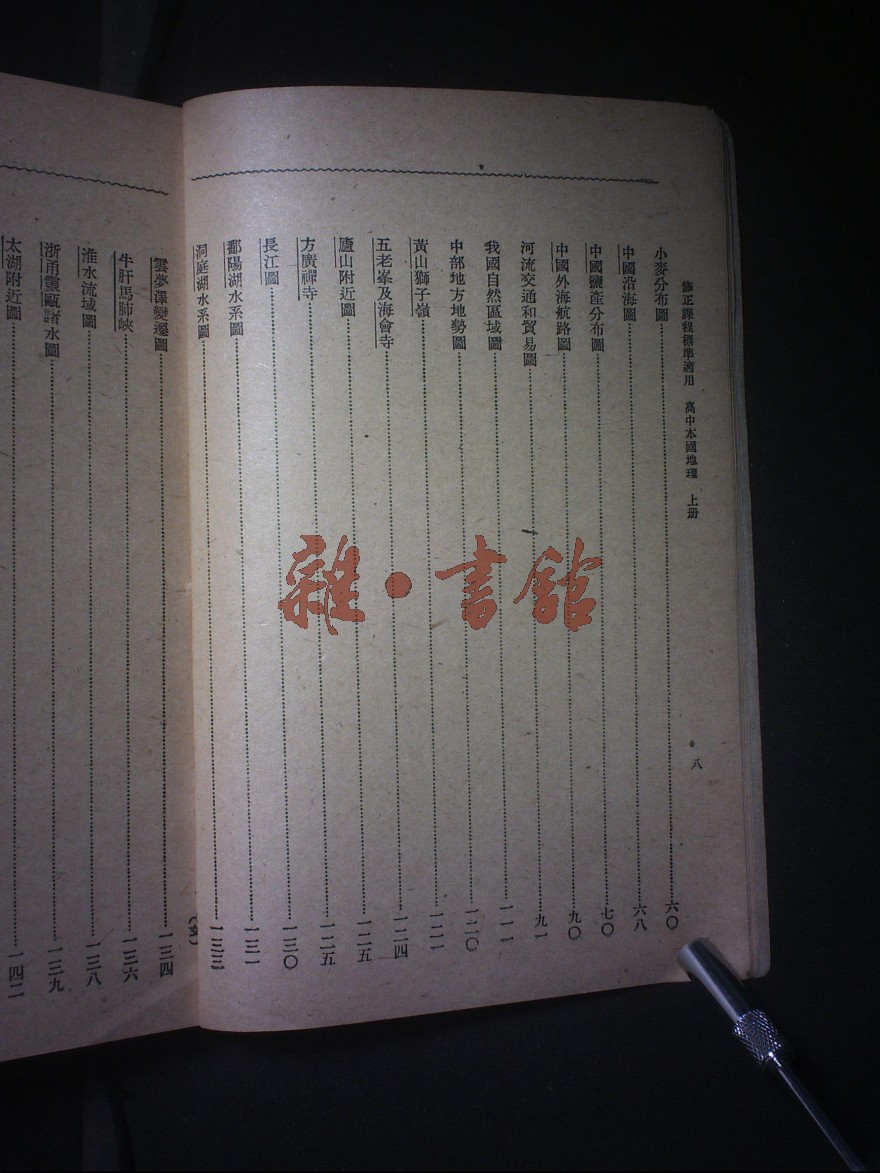 修正課程標準適用 高中本國地理 上册
八
小麥分布圖 六〇
中國沿海圖 六八
中國鹽產分布圖 七〇
中國外海航路圖 九〇
河流交通和貿易圖 九一
我國自然區域圖 一一一
中部地方地勢圖 一二〇
黃山獅子嶺 一二一
五老峯及海會寺 一二四
廬山附近圖 一二五
方廣禪寺 一二五
長江圖 一三〇
鄱陽湖水系圖 一三一
洞庭湖水系圖 一三三
雲夢澤變遷圖 一三四
牛肝馬肺峽 一三六
淮水流域圖 一三八
浙甬靈甌諸水圖 一三九
太湖附近圖 一四二
雜·書館